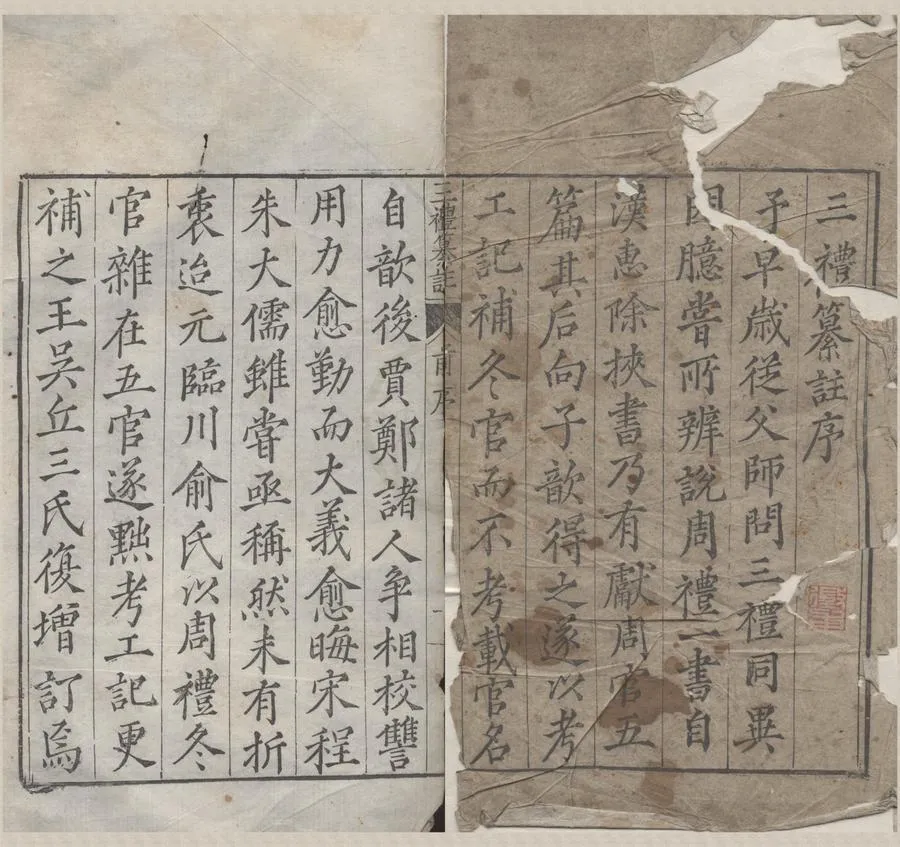 三禮纂註序
予早歲從父師問三禮同異
因臆嘗所辨說周禮一書自
漢惠除挾書乃有獻周官五
篇其后向子歆得之遂以考
工記補冬官而不考載官名
三禮纂註 前序
自歆後賈鄭諸人爭相校讐
用力愈勤而大義愈晦宋程
朱大儒雖嘗亟稱然未有折
衷迨元臨川俞氏以周禮冬
官雜在五官遂黜考工記更
補之王吳丘三氏復增訂焉